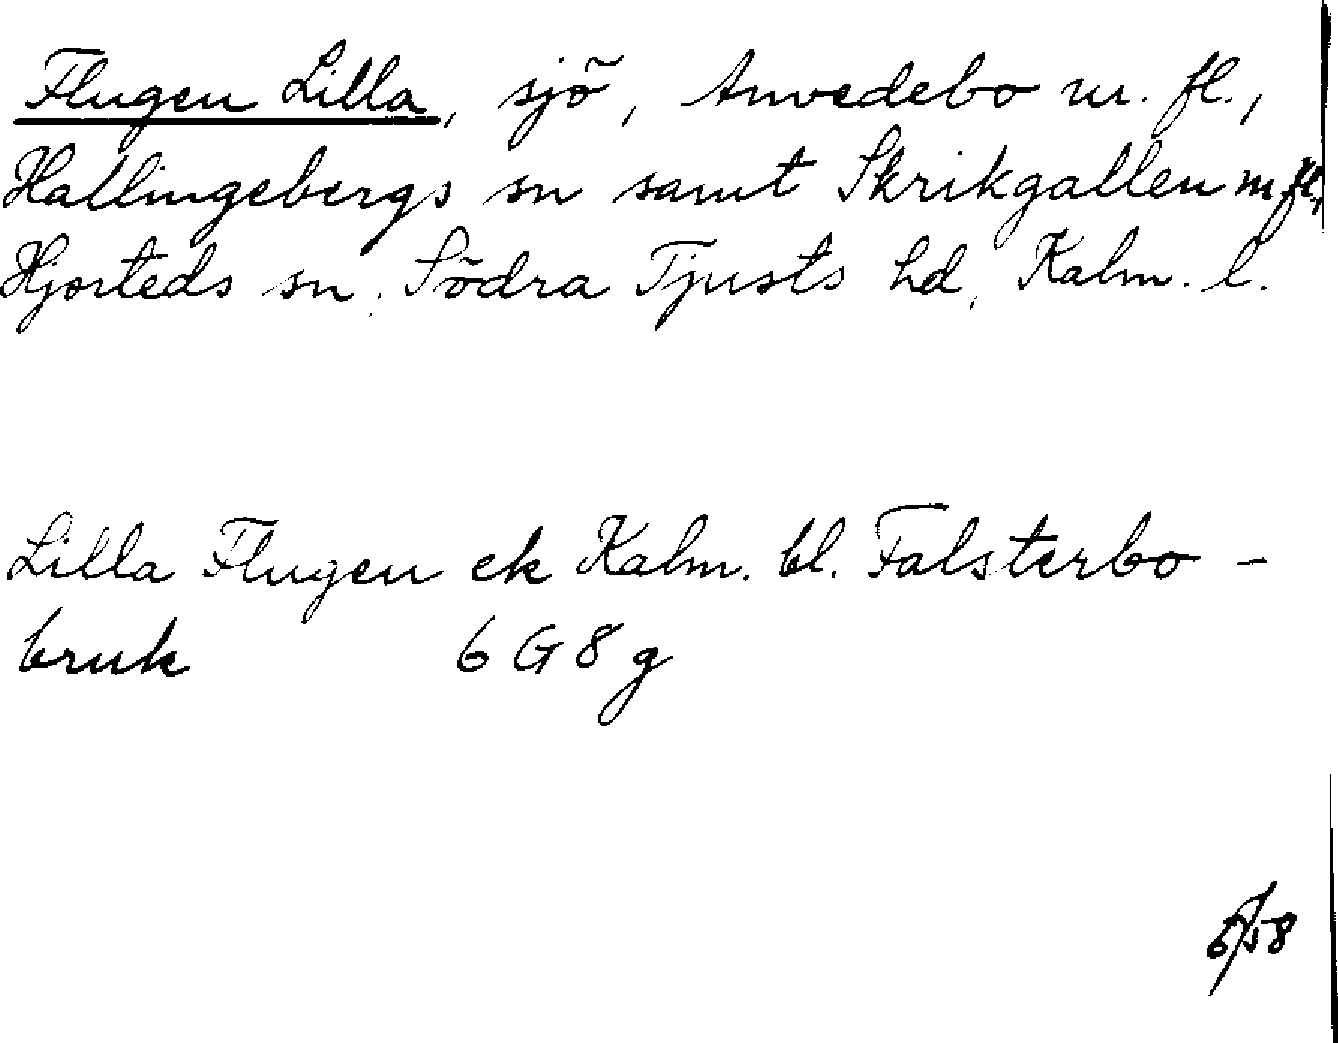 Flugen Lilla, sjö, Anvedebo m. fl.,
Hallingebergs sn samt Skrikgallen m fl,
Hjorteds sn, Södra Tjusts hd, Kalm. l.
Lilla Flugen ek Kalm. bl. Falsterbo -
bruk 6 G 8 g